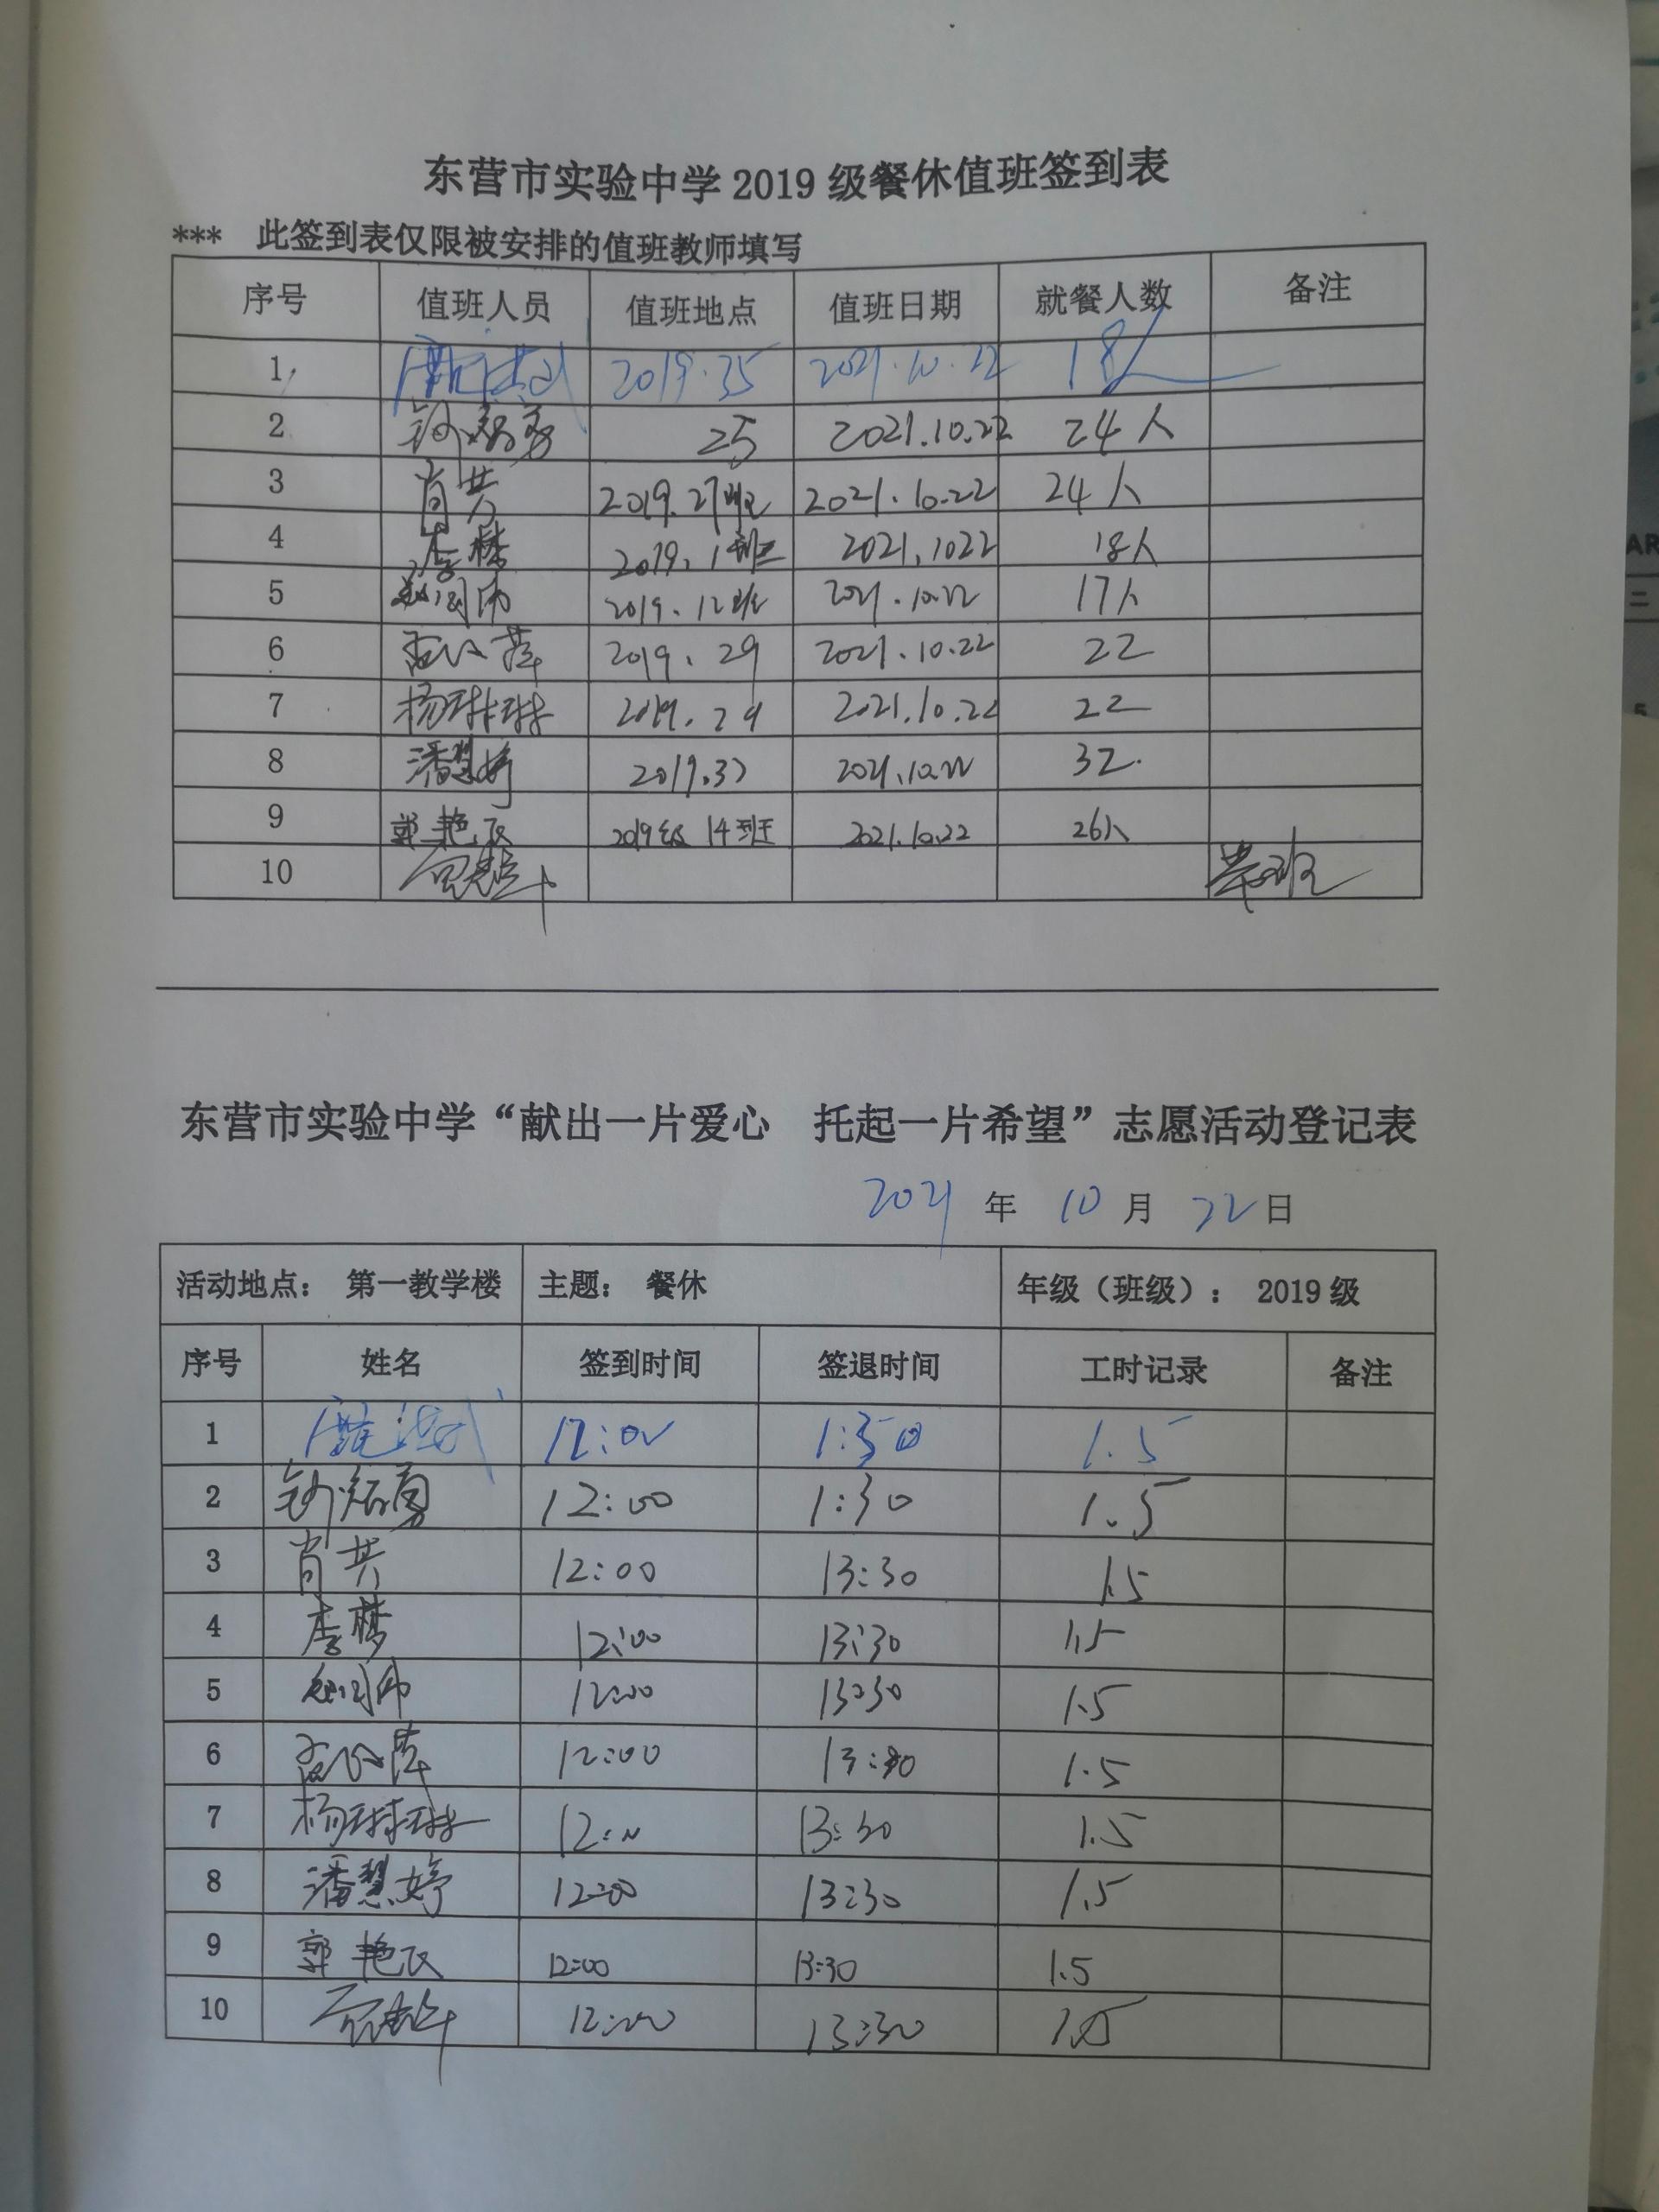 东营市实验中学 2019 级餐休值班签到表
*** 此签到表仅限被安排的值班教师填写
序号 值班人员 值班地点 值班日期 就餐人数 备注
1 2019.35 2021.10.22 18人
2 25 2021.10.22 24人
3 2019.27班 2021.10.22 24人
4 李梦 2019.1班 2021.1022 18人
5 2019.12班 2021.10.22 17人
6 2019.29 2021.10.22 22
7 杨琳琳 2019.29 2021.10.22 22
8 潘慧婷 2019.33 2021.10.22 32.
9 郭艳 2019级 14班 2021.10.22 26人
10 带班
东营市实验中学“献出一片爱心 托起一片希望”志愿活动登记表
2021 年 10 月 22 日
活动地点： 第一教学楼 主题： 餐休 年级（班级）： 2019 级
序号 姓名 签到时间 签退时间 工时记录 备注
1 12:00 1:30 1.5
2 12:00 1:30 1.5
3 12:00 13:30 1.5
4 李梦 12:00 13:30 1.5
5 12:00 13:30 1.5
6 12:00 13:30 1.5
7 杨琳琳 12:00 13:30 1.5
8 潘慧婷 12:00 13:30 1.5
9 郭艳 12:00 13:30 1.5
10 12:00 13:30 1.5